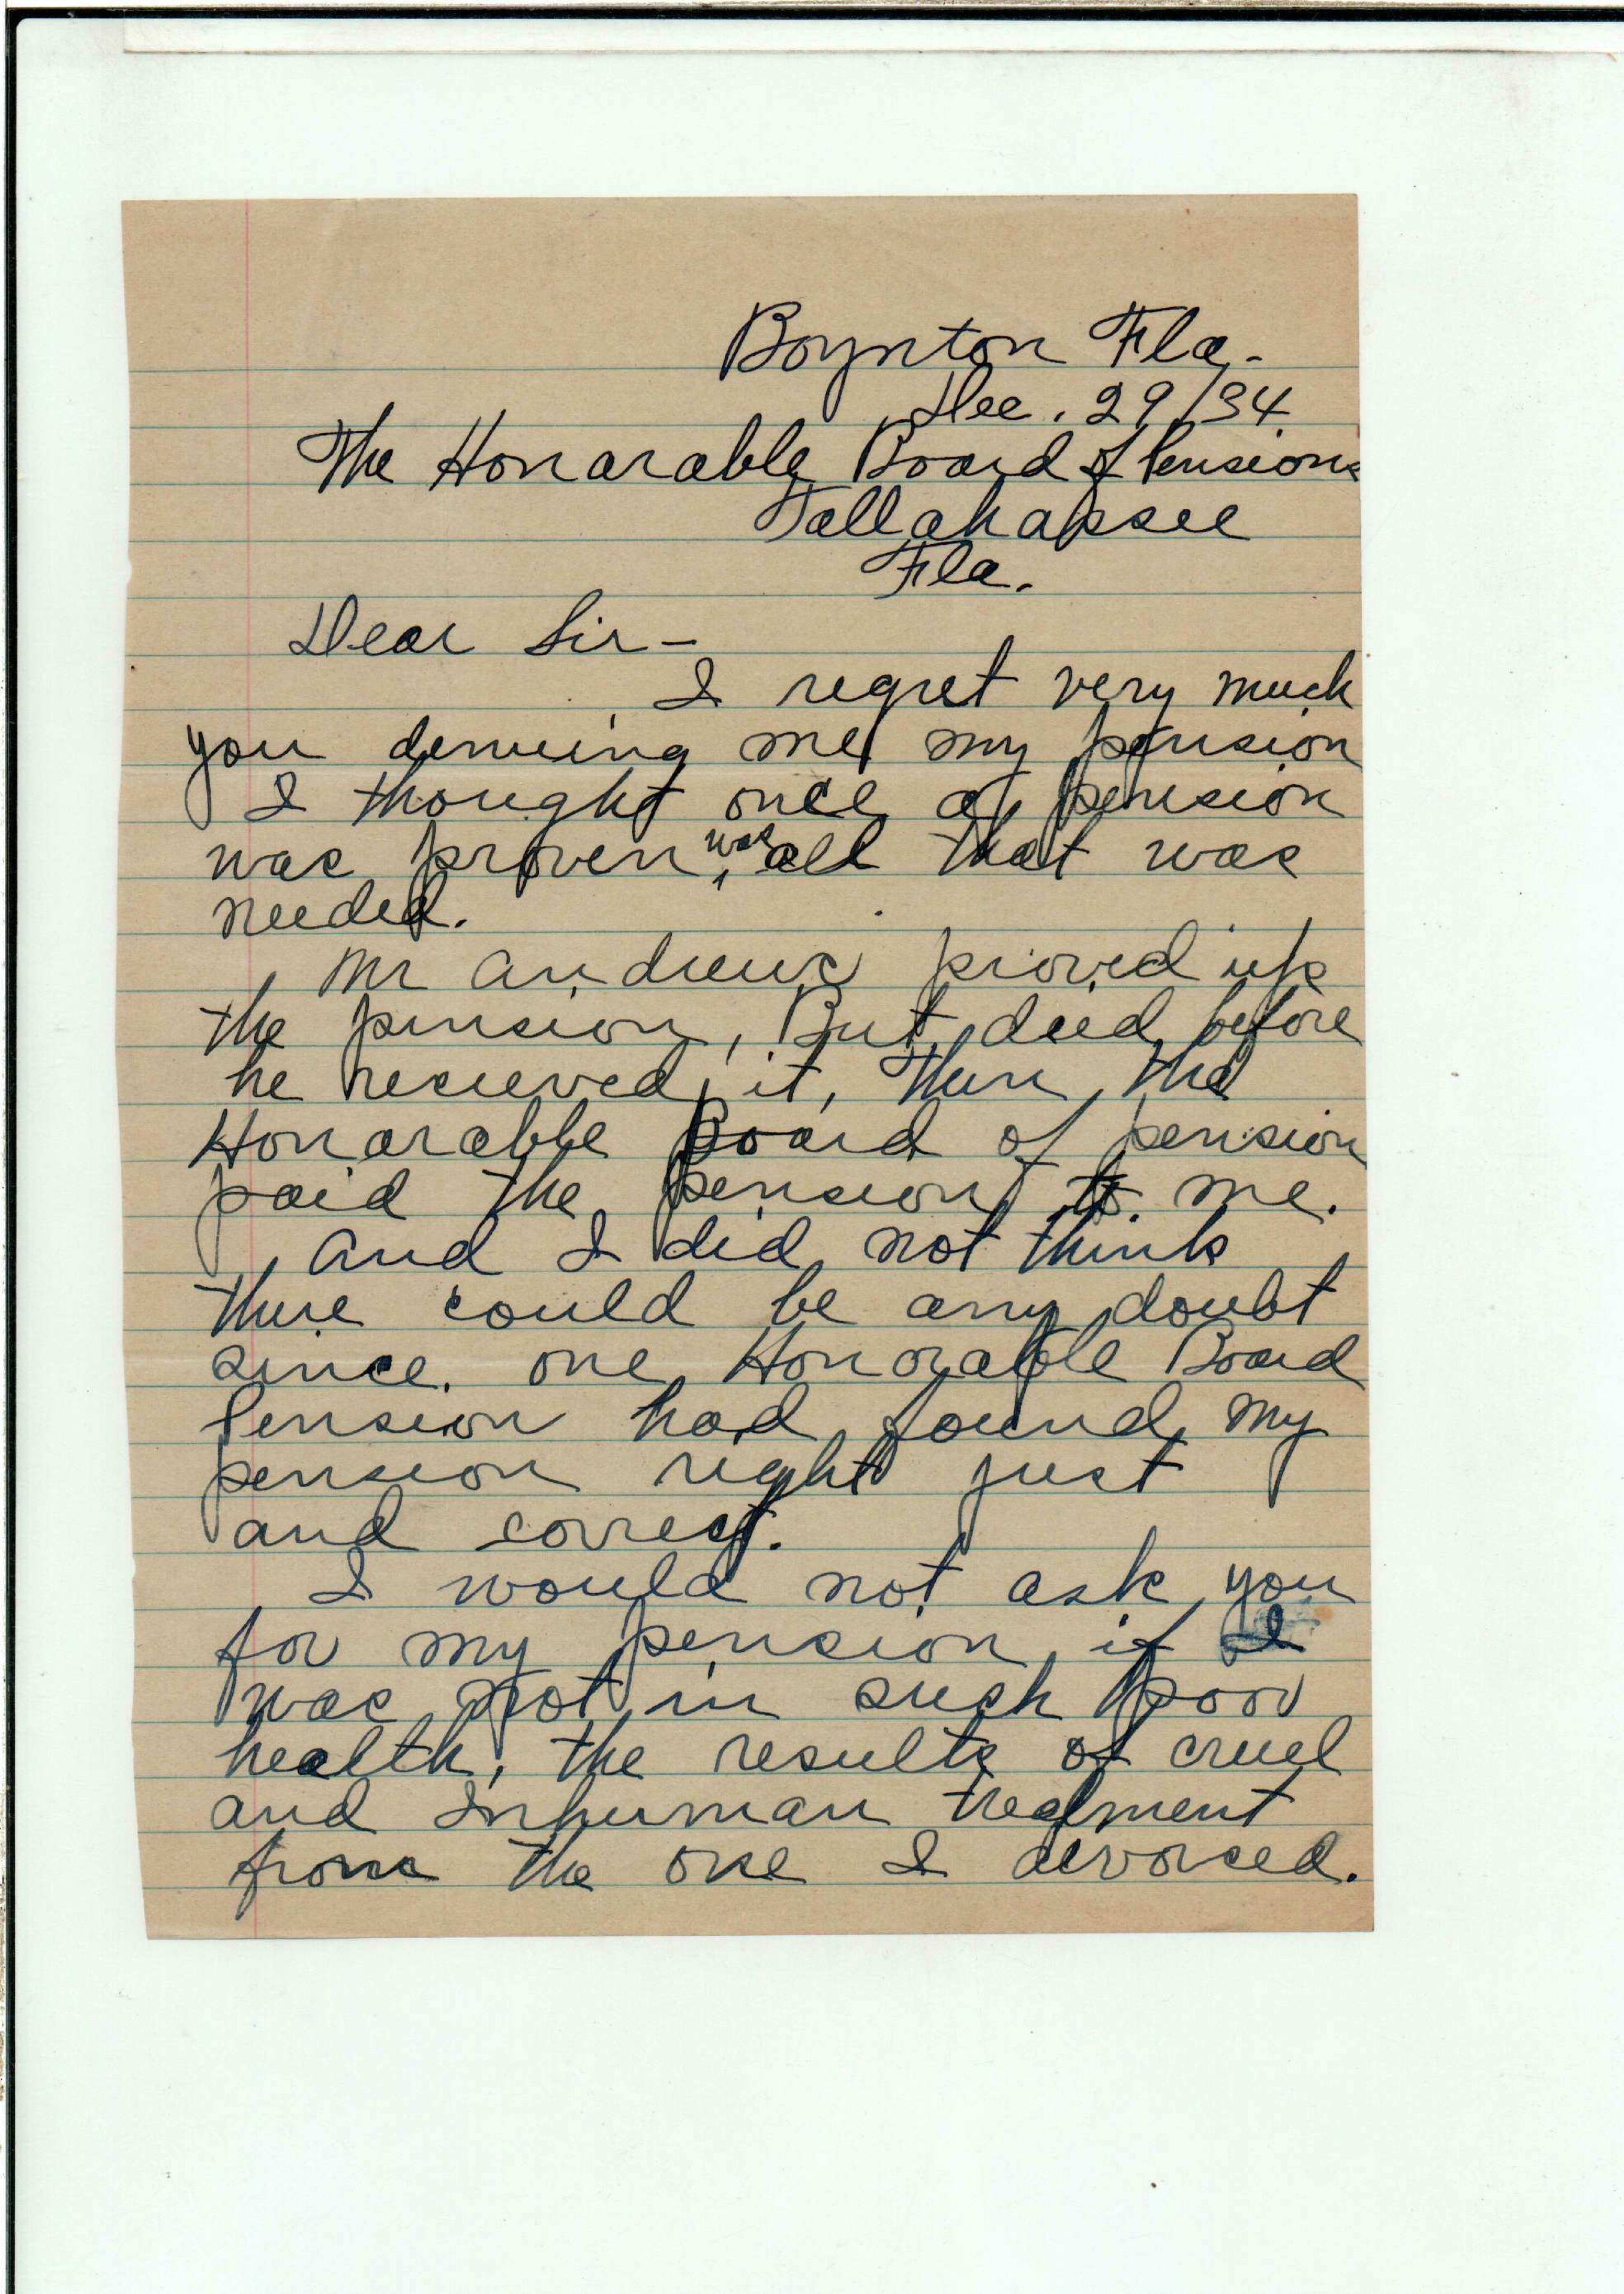 Boynton Fla.
Dec. 29/34
The Honarable Board of Pensions
Tallahassee
Fla.
Dear Sir-
I regret very much
you denieing me my pension
I thought once a pension
was proven, was all that was
needed.
Mr Andrews proved up
the pension, But died before
he recieved it, Then the
Honarable Board of pension
paid the pension to me.
And I did not think
there could be any doubt
since one Honorable Board
Pension had found my
pension right just
and correct.
I would not ask you
for my pension if I
was not in such poor
health, the results of cruel
and Inhuman treatment
from the one I divorced.